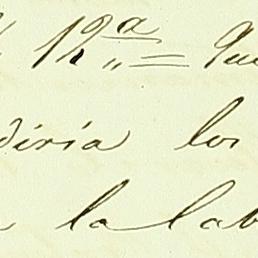 12ª = Que
diría los
la lab